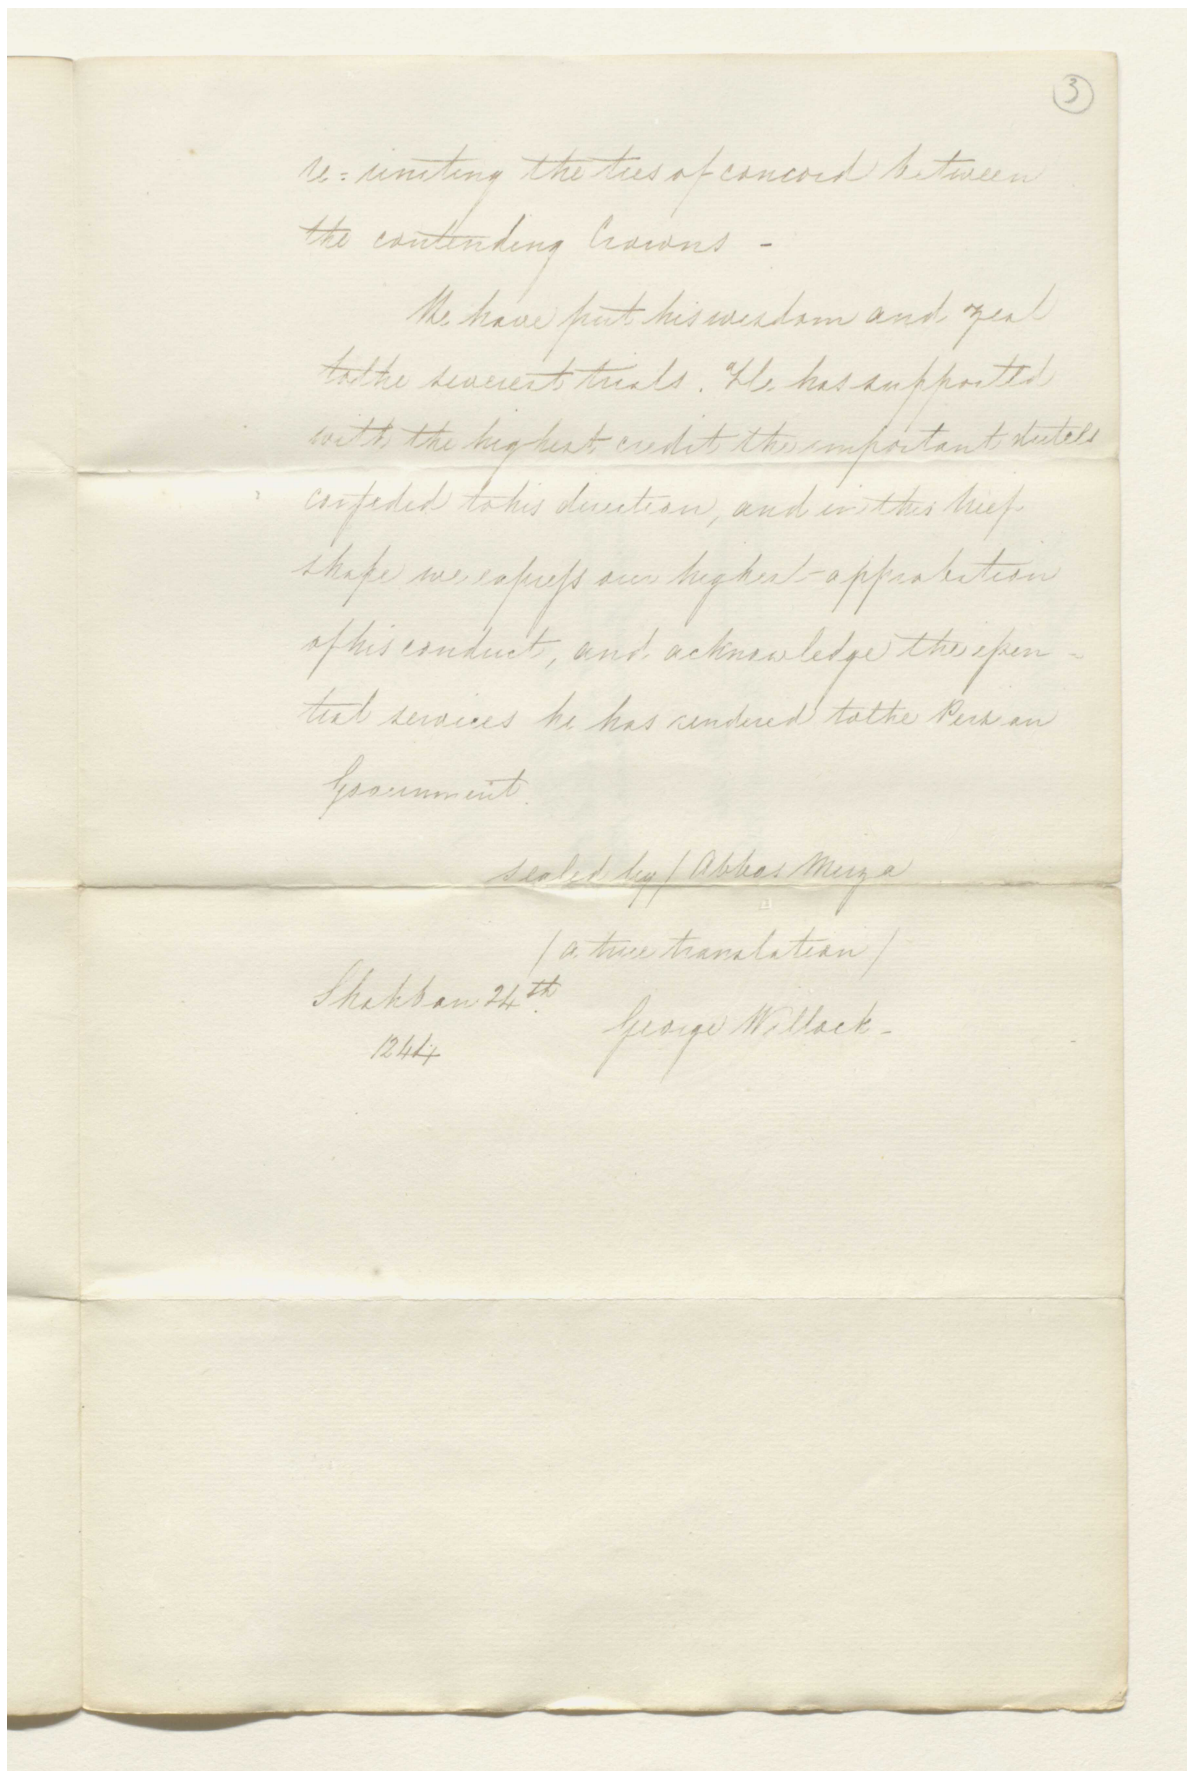 3
re-uniting the ties of concord between
the contending Crowns -
We have put his wisdom and zeal
to the severest trials. He has supported
with the highest credit the important duties
confided to his direction, and in this brief
shape we express our highest approbation
of his conduct, and acknowledge the essen-
tial services he has rendered to the Persian
Government.
sealed by / Abbas Mirza
/ a true translation /
Shahban 24th
George Willock -
1244